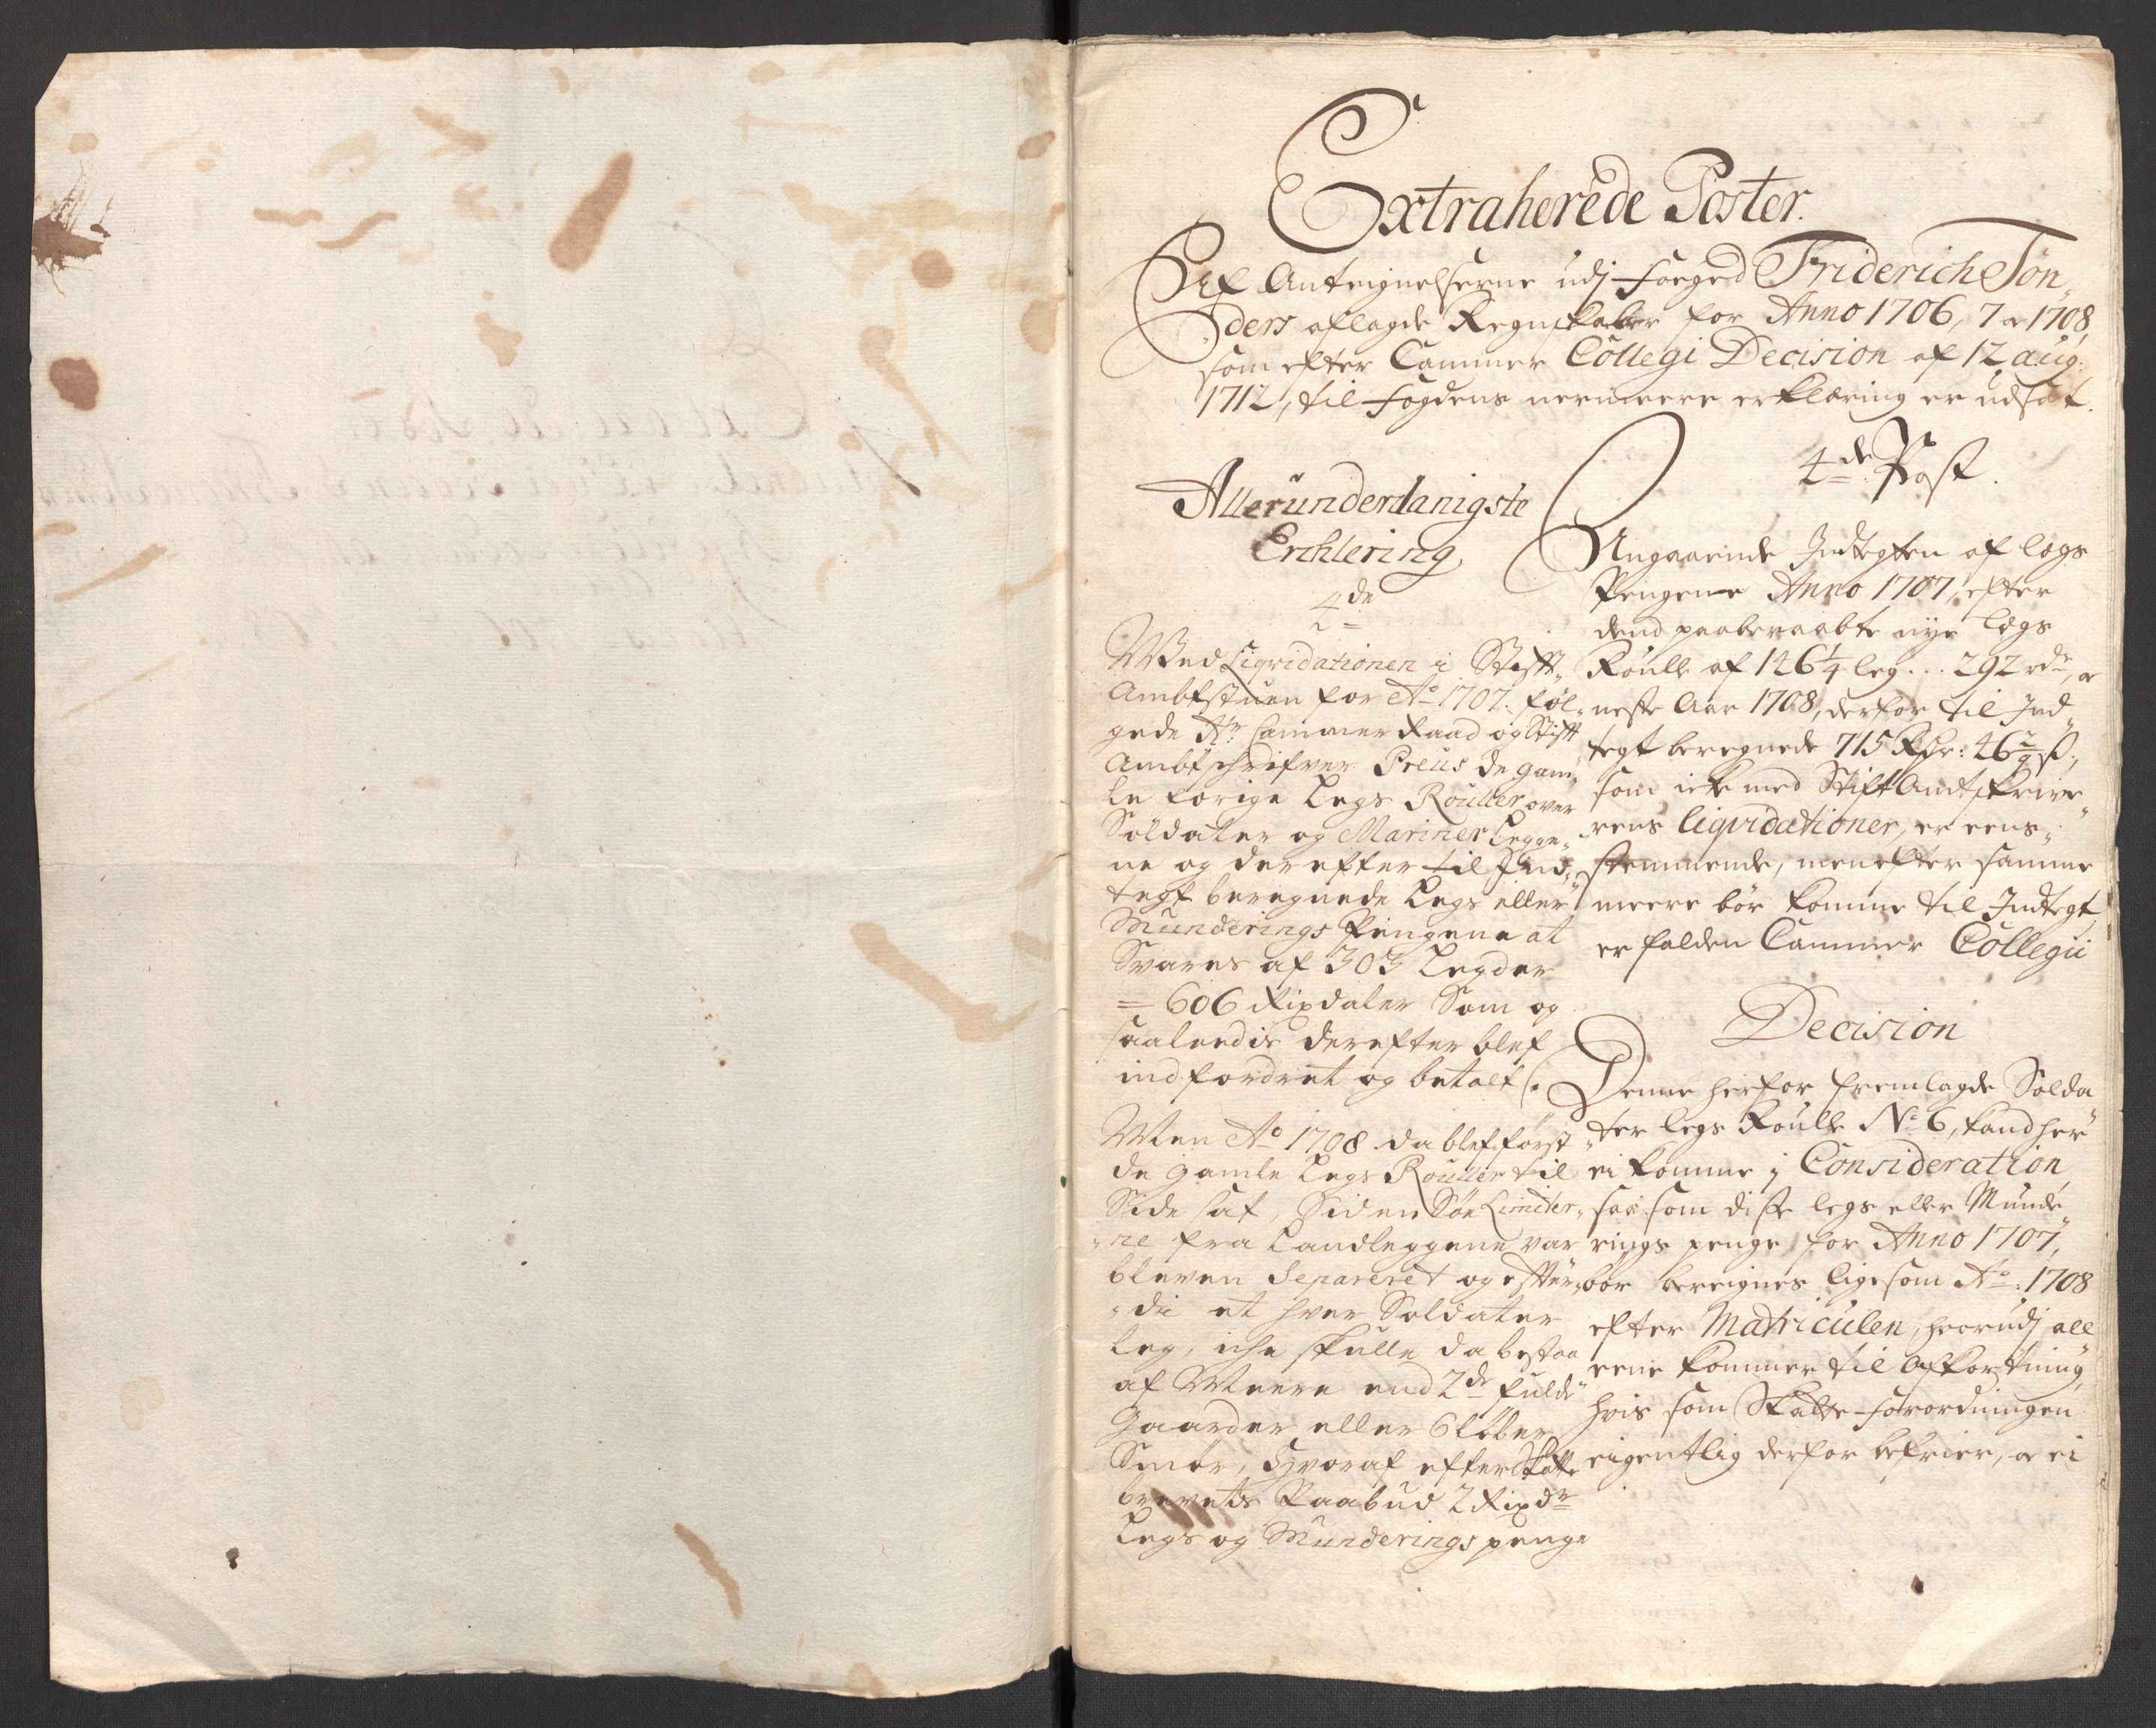 Extraherede Poster.
Af Anteignelserne udj foeged Friderich Tøn„
ders aflagde Regnskaber for Anno 1706, 7 og 1708,
som efter Cammer Collegi Decision af 12 aug:
1712, til fogdens nermeere erklæring er udsat.
Allerunderdanigste
Erchlering
4de
Wed Liqvidationen i Stifft„
Ambtstuen for Ao 1707. føl„
gede Hr: Cammer Raad og Stifft
Ambtschrifver Preüs de gam„
le forige Legs Roüller over
Soldater og Mariner Leggen„
ne og derefter til Ind„
tegt beregnede Legs eller
Munderings Pengene at
Svares af 303 Legder
= 606 Rixdaler Som og
saaleedis derefter blef
indfordret og betalt.
Men Ao 1708 da blef først
de gamle Legs Roüller til
Side sat, Siden Søe Limiter„
„ne fra Landleggene var
bleven Separeret og efter„
„di et hver Soldater
Leg, iche skulle da bestaa
af Meere end 2de fulde
Gaarder eller 6 Løber
Smør, Hvoraf efter Skatte
brevets Paabud 2 Rixdr
Legs og Munderings penge
4de Post.
Angaaende Indtegten af legs
Pengene Anno 1707, efter
dend paaberaabte nye legs
Roulle af 146 1/4 leg... 292 rdr, og
neste Aar 1708, derfor til Ind„
tegt beregnede 715 Rdr: 46 2/7 ß,
som icke med Stift Amtskrive„
rens liqvidationer, er eens„
stemmende, men efter samme
meere bør komme til Indtegt,
er falden Cammer Collegii
Decision
Denne herfor fremlagde Solda„
ter legs Roulle No 6, kand her
ei komme i Consideration,
saa som disse legs eller Munde„
rings penge for Anno 1707,
bør bereignes ligesom Ao: 1708
efter Matriculen, hvorudj all„
eene kommer til Afkortning,
hvis som Skatte-forordningen
eigentlig derfor befrier, og ei